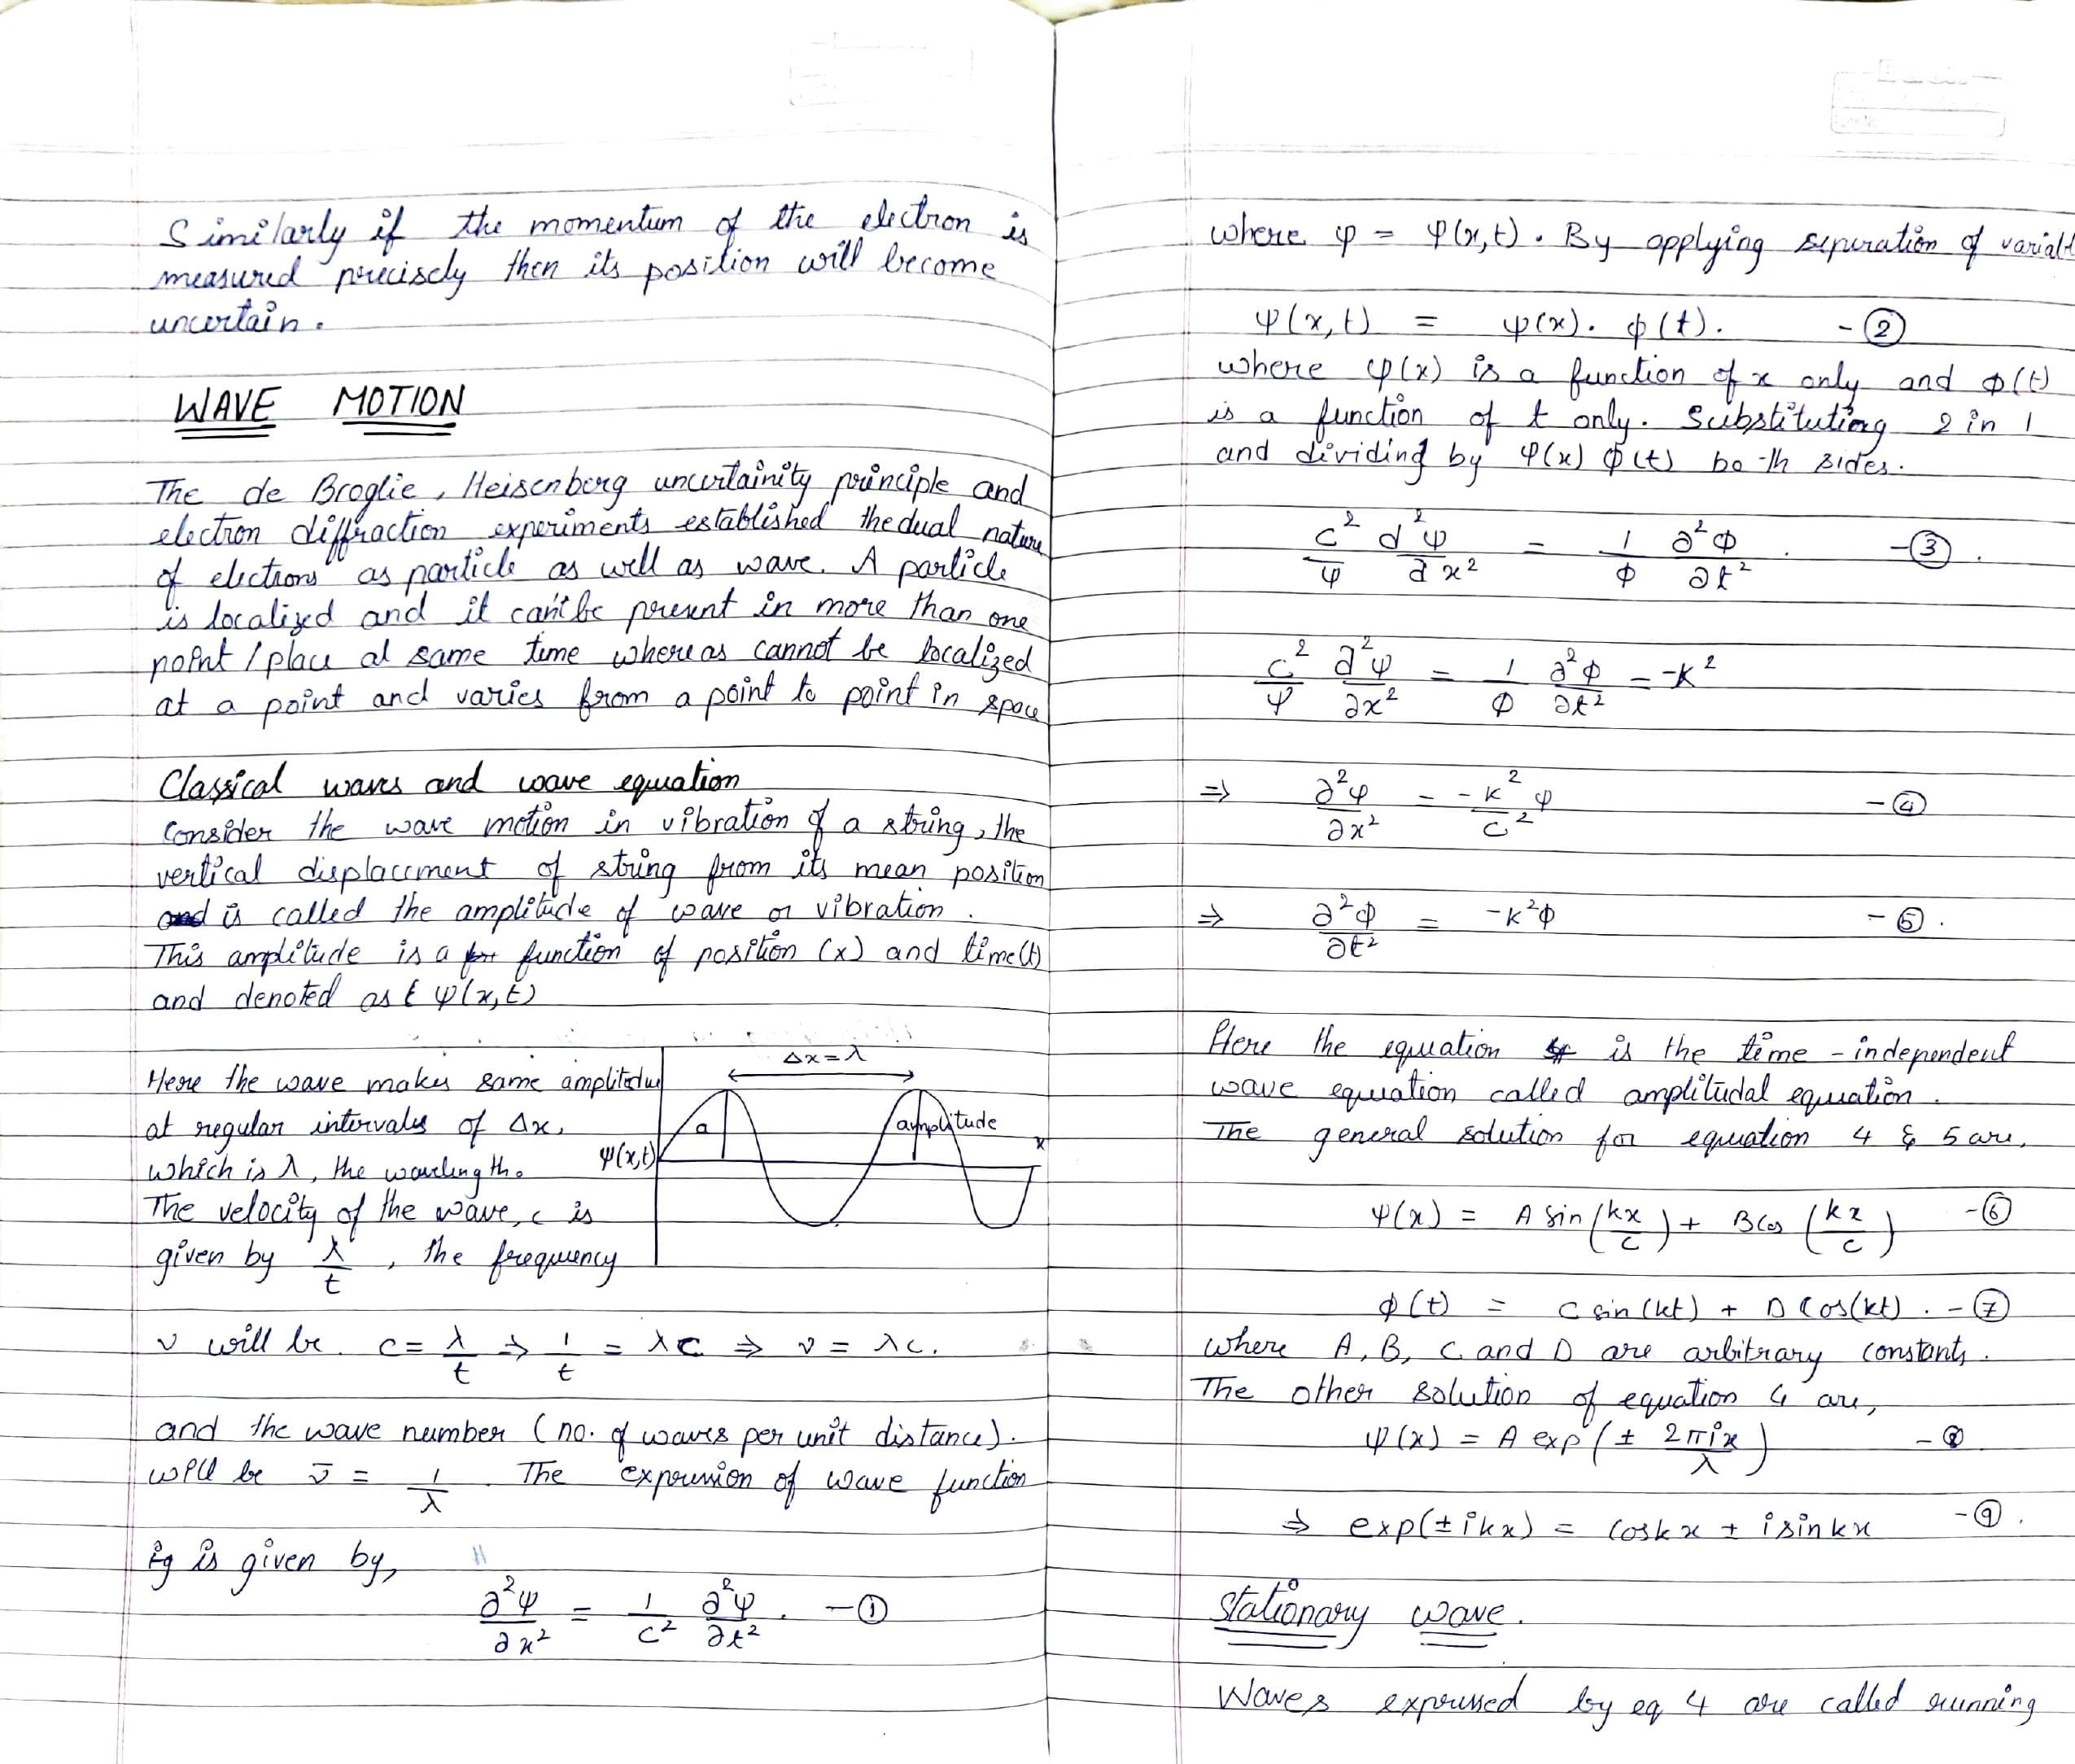 Similarly if the momentum of the electron is
measured precisely then its position will become
uncertain.
WAVE MOTION
The de Broglie, Heisenberg uncertainity principle and
electron diffraction experiments established the dual nature
of electrons as particle as well as wave. A particle
is localized and it can't be present in more than one
point / place at same time whereas cannot be localized
at a point and varies from a point to point in space
Classical waves and wave equation
Consider the wave motion in vibration of a string, the
vertical displacement of string from its mean position
is called the amplitude of wave or vibration.
This amplitude is a function of position (x) and time(t)
and denoted as ψ(x,t)
Here the wave makes same amplitudes
at regular intervals of Δx,
which is λ, the wavelength.
The velocity of the wave, c is
given by λ/t, the frequency
Δx=λ
a
amplitude
x
ψ(x,t)
ν will be c = λ/t ⇒ 1/t = λc ⇒ ν = λc.
and the wave number (no. of waves per unit distance).
will be ν̄ = 1/λ. The expression of wave function
is given by,
∂²ψ/∂x² = 1/c² ∂²ψ/∂t². -①
where ψ = ψ(x,t). By applying separation of variabl
ψ(x,t) = ψ(x). ϕ(t). -②
where ψ(x) is a function of x only and ϕ(t)
is a function of t only. Substituting 2 in 1
and dividing by ψ(x) ϕ(t) both sides.
c²/ψ d²ψ/dx² = 1/ϕ ∂²ϕ/∂t². -③.
c²/ψ ∂²ψ/∂x² = 1/ϕ ∂²ϕ/∂t² = -K²
⇒ ∂²ψ/∂x² = -K²/c² ψ -④
⇒ ∂²ϕ/∂t² = -K²ϕ -⑤.
Here the equation is the time-independent
wave equation called amplitudal equation.
The general solution for equation 4 & 5 are,
ψ(x) = A sin(kx/c) + B cos(kx/c) -⑥
ϕ(t) = C sin(kt) + D Cos(kt). -⑦
where A, B, C and D are arbitrary constants.
The other solution of equation 4 are,
ψ(x) = A exp(± 2πix/λ) -⑧
⇒ exp(±ikx) = coskx ± isinkx -⑨.
Stationary wave.
Waves expressed by eq 4 are called running